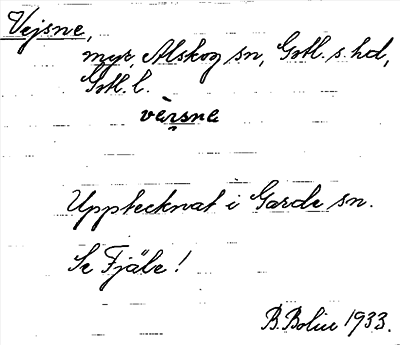 Vejsne,
myr, Alskog sn, Gotl. s. hd,
Gotl. l.
värsne
Upptecknat i Garde sn.
Se Fjäle!
B. Bolin 1933.